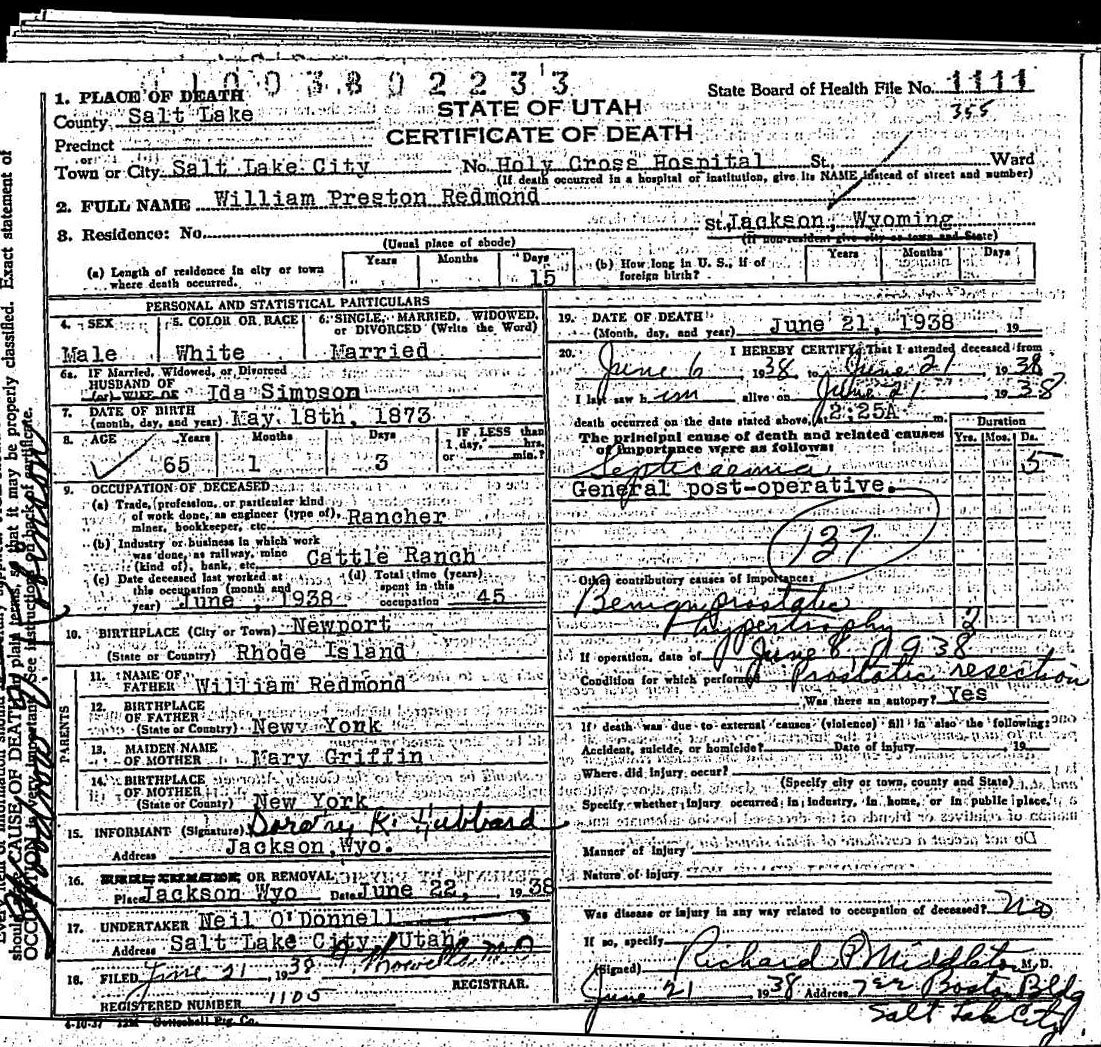 0 1 0 0 3 8 0 2 2 3 3
State Board of Health File No. 1111
355
1. PLACE OF DEATH
STATE OF UTAH
County Salt Lake
CERTIFICATE OF DEATH
Precinct
or
Town or City Salt Lake City No. Holy Cross Hospital St. Ward
(If death occurred in a hospital or institution, give its NAME instead of street and number)
2. FULL NAME William Preston Redmond
3. Residence: No. St. Jackson, Wyoming
(Usual place of abode) (If non-resident give city or town and State)
(a) Length of residence in city or town where death occurred. Years Months Days 15
(b) How long in U. S., if of foreign birth? Years Months Days
PERSONAL AND STATISTICAL PARTICULARS
4. SEX 5. COLOR OR RACE 6. SINGLE, MARRIED, WIDOWED, or DIVORCED (Write the Word)
Male White Married
6a. IF Married, Widowed, or Divorced
HUSBAND OF
(or) WIFE OF Ida Simpson
7. DATE OF BIRTH
(month, day, and year) May 18th, 1873
8. AGE Years Months Days IF LESS than 1 day, hrs. or min.?
65 1 3
9. OCCUPATION OF DECEASED
(a) Trade, profession, or particular kind
of work done, as engineer (type of),
miner, bookkeeper, etc. Rancher
(b) Industry or business in which work
was done, as railway, mine
(kind of), bank, etc. Cattle Ranch
(c) Date deceased last worked at this occupation (month and year) June, 1938
(d) Total time (years) spent in this occupation 45
10. BIRTHPLACE (City or Town) Newport
(State or Country) Rhode Island
PARENTS
11. NAME OF
FATHER William Redmond
12. BIRTHPLACE
OF FATHER
(State or Country) New York
13. MAIDEN NAME
OF MOTHER Mary Griffin
14. BIRTHPLACE
OF MOTHER
(State or County) New York
15. INFORMANT (Signature) Dorothy K. Hubbard
Address Jackson, Wyo.
16. OR REMOVAL
Place Jackson Wyo Date June 22, 1938
17. UNDERTAKER Neil O'Donnell
Address Salt Lake City, Utah
18. FILED June 21, 1938 M.D.
REGISTRAR.
REGISTERED NUMBER 1105
4-10-37 22M Gottschell Ptg. Co.
19. DATE OF DEATH
(Month, day, and year) June 21, 1938 19
20. I HEREBY CERTIFY, That I attended deceased from
June 6 1938 to June 21 1938
I last saw him alive on June 21 1938
death occurred on the date stated above, at 2:25A m.
The principal cause of death and related causes
of importance were as follows:
Duration
Yrs. Mos. Ds.
Septicaemia 5
General post-operative.
137
Other contributory causes of importance:
Benign prostatic
Hypertrophy 2
If operation, date of June 8, 1938
Condition for which performed Prostatic resection
Was there an autopsy? Yes
If death was due to external causes (violence) fill in also the following:
Accident, suicide, or homicide? Date of injury 19
Where did injury occur?
(Specify city or town, county and State)
Specify whether injury occurred in industry, in home, or in public place.
Manner of injury
Nature of injury
Was disease or injury in any way related to occupation of deceased? No
If so, specify
(Signed) Richard P Middleton M. D.
June 21 1938 Address Boston Bldg
Salt Lake City
should CAUSE OF DEATH in plain terms, so that it may be properly classified. Exact statement of
OCCUPATION is very important. See instructions on back of certificate.